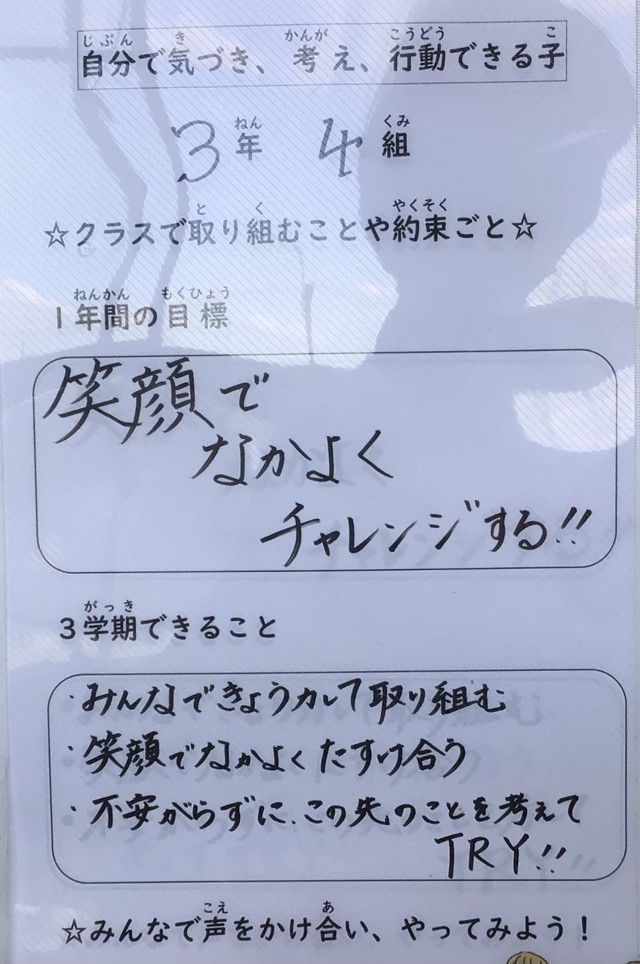 自分で気づき、考え、行動できる子
3年 4組
☆クラスで取り組むことや約束ごと☆
1年間の目標
笑顔で
なかよく
チャレンジする!!
3学期できること
・みんなできょう力して取り組む
・笑顔でなかよくたすけ合う
・不安がらずに、この先のことを考えて
TRY!!
☆みんなで声をかけ合い、やってみよう！